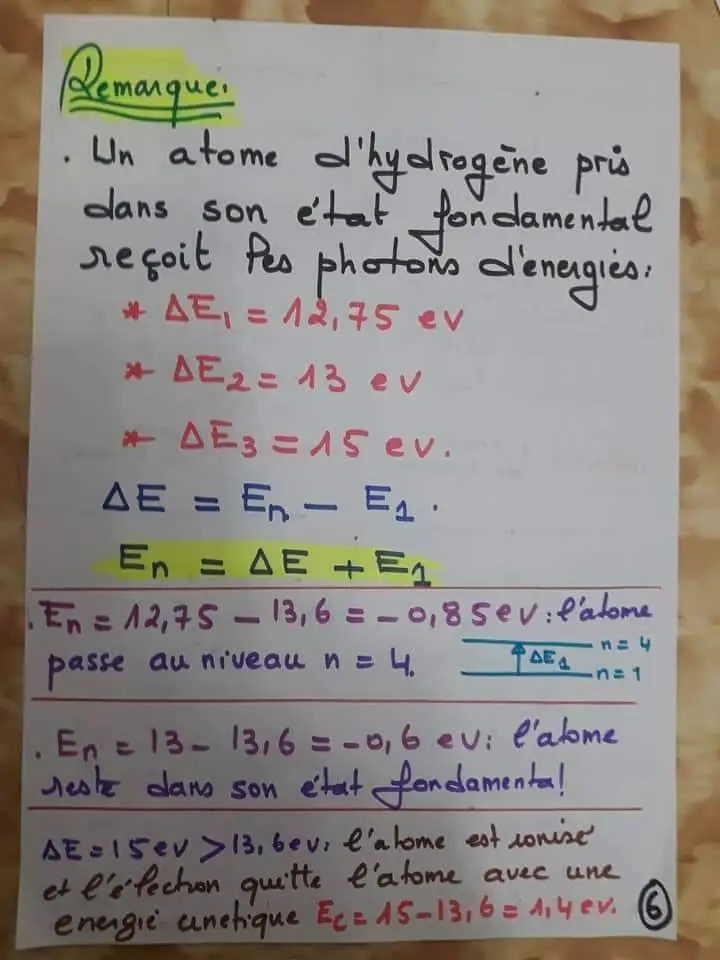 Remarque.
. Un atome d'hydrogène pris
dans son état fondamental
reçoit les photons d'energiés:
* ΔE₁ = 12,75 ev
* ΔE₂ = 13 ev
* ΔE₃ = 15 ev.
ΔE = En - E₁.
En = ΔE + E₁
. En = 12,75 - 13,6 = -0,85 ev: l'atome
passe au niveau n = 4.
n = 4
ΔE₁
n = 1
. En = 13 - 13,6 = -0,6 ev: l'atome
reste dans son état fondamental
ΔE = 15 ev > 13,6 ev: l'atome est ionisé
et l'électron quitte l'atome avec une
energie cinetique Ec = 15-13,6 = 1,4 ev.
6